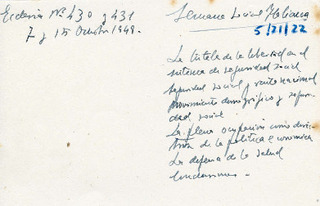 Ecclesia Nº 430 y 431
7 y 15 Octubre 1949.
Semana Social Italiana
5/21/22
La tutela de la libertad en el
sistema de seguridad social
seguridad social y renta nacional
movimiento demográfico y seguri-
dad social
La plena ocupación como direc-
triz de la política economica
La defensa de la salud